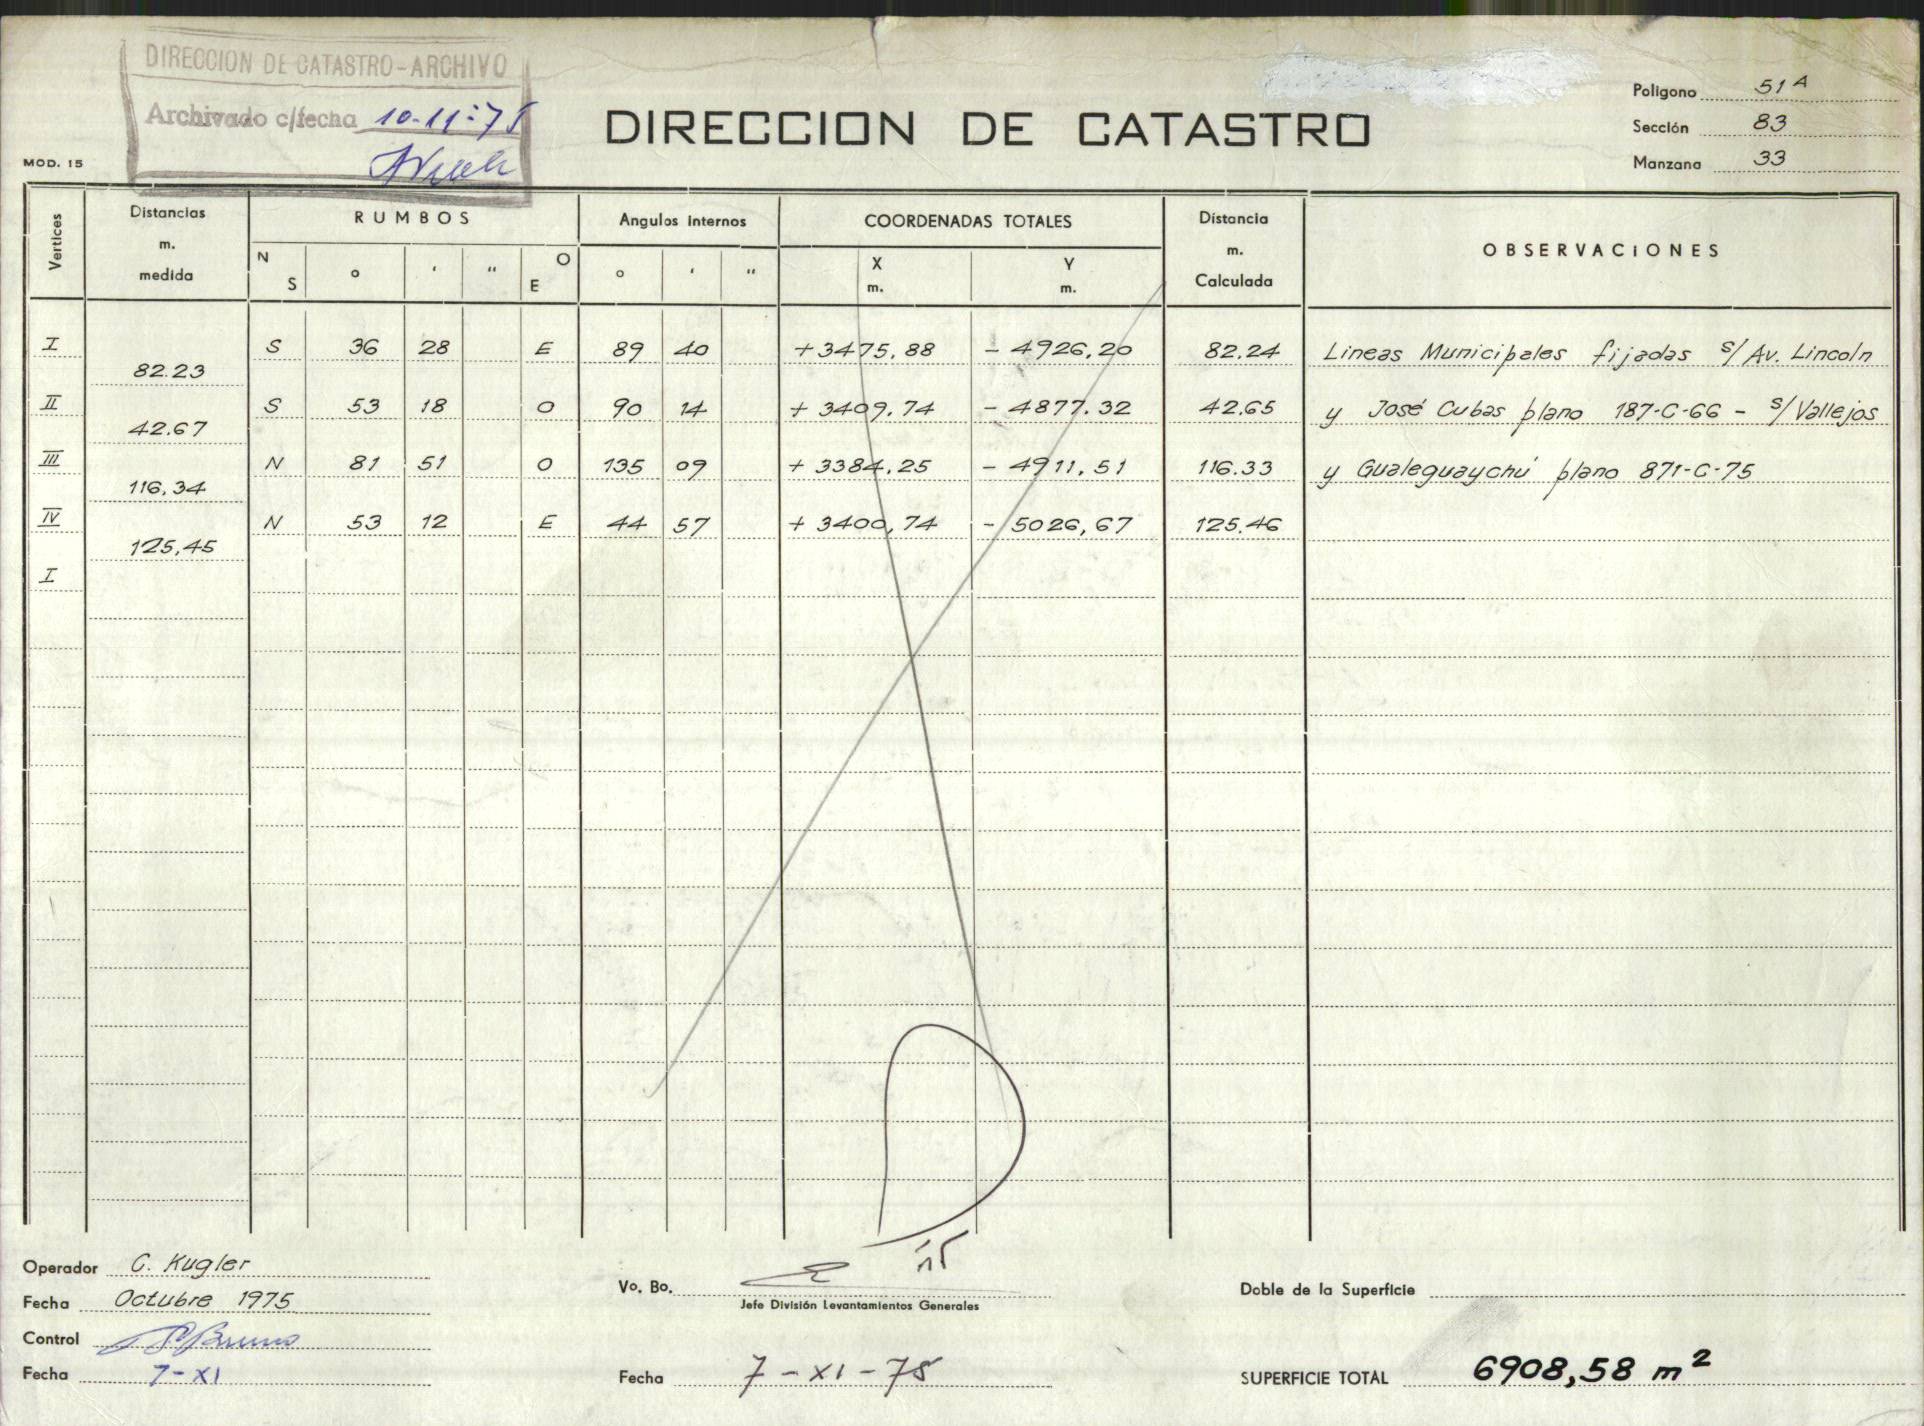 DIRECCION DE CATASTRO-ARCHIVO
Archivado c/fecha 10-11-75
DIRECCION DE CATASTRO
MOD. 15
Poligono 51 A
Sección 83
Manzana 33
Vertices Distancias m. medida RUMBOS Angulos Internos COORDENADAS TOTALES Distancia m. Calculada OBSERVACIONES
N S ° ' " O E ° ' " X m. Y m.
I S 36 28 E 89 40 +3475,88 - 4926,20 82.24 Lineas Municipales fijadas s/ Av. Lincoln
82.23
II S 53 18 O 90 14 + 3409,74 - 4877.32 42.65 y José Cubas plano 187-C-66 - s/ Vallejos
42.67
III N 81 51 O 135 09 + 3384,25 - 4911,51 116.33 y Gualeguaychú plano 871-C-75
116,34
IV N 53 12 E 44 57 + 3400,74 - 5026,67 125.46
125,45
I
Operador C. Kugler
Fecha Octubre 1975
Control
Fecha 7-XI
Vo. Bo.
Jefe División Levantamientos Generales
Fecha 7-XI-75
Doble de la Superficie
SUPERFICIE TOTAL 6908,58 m²